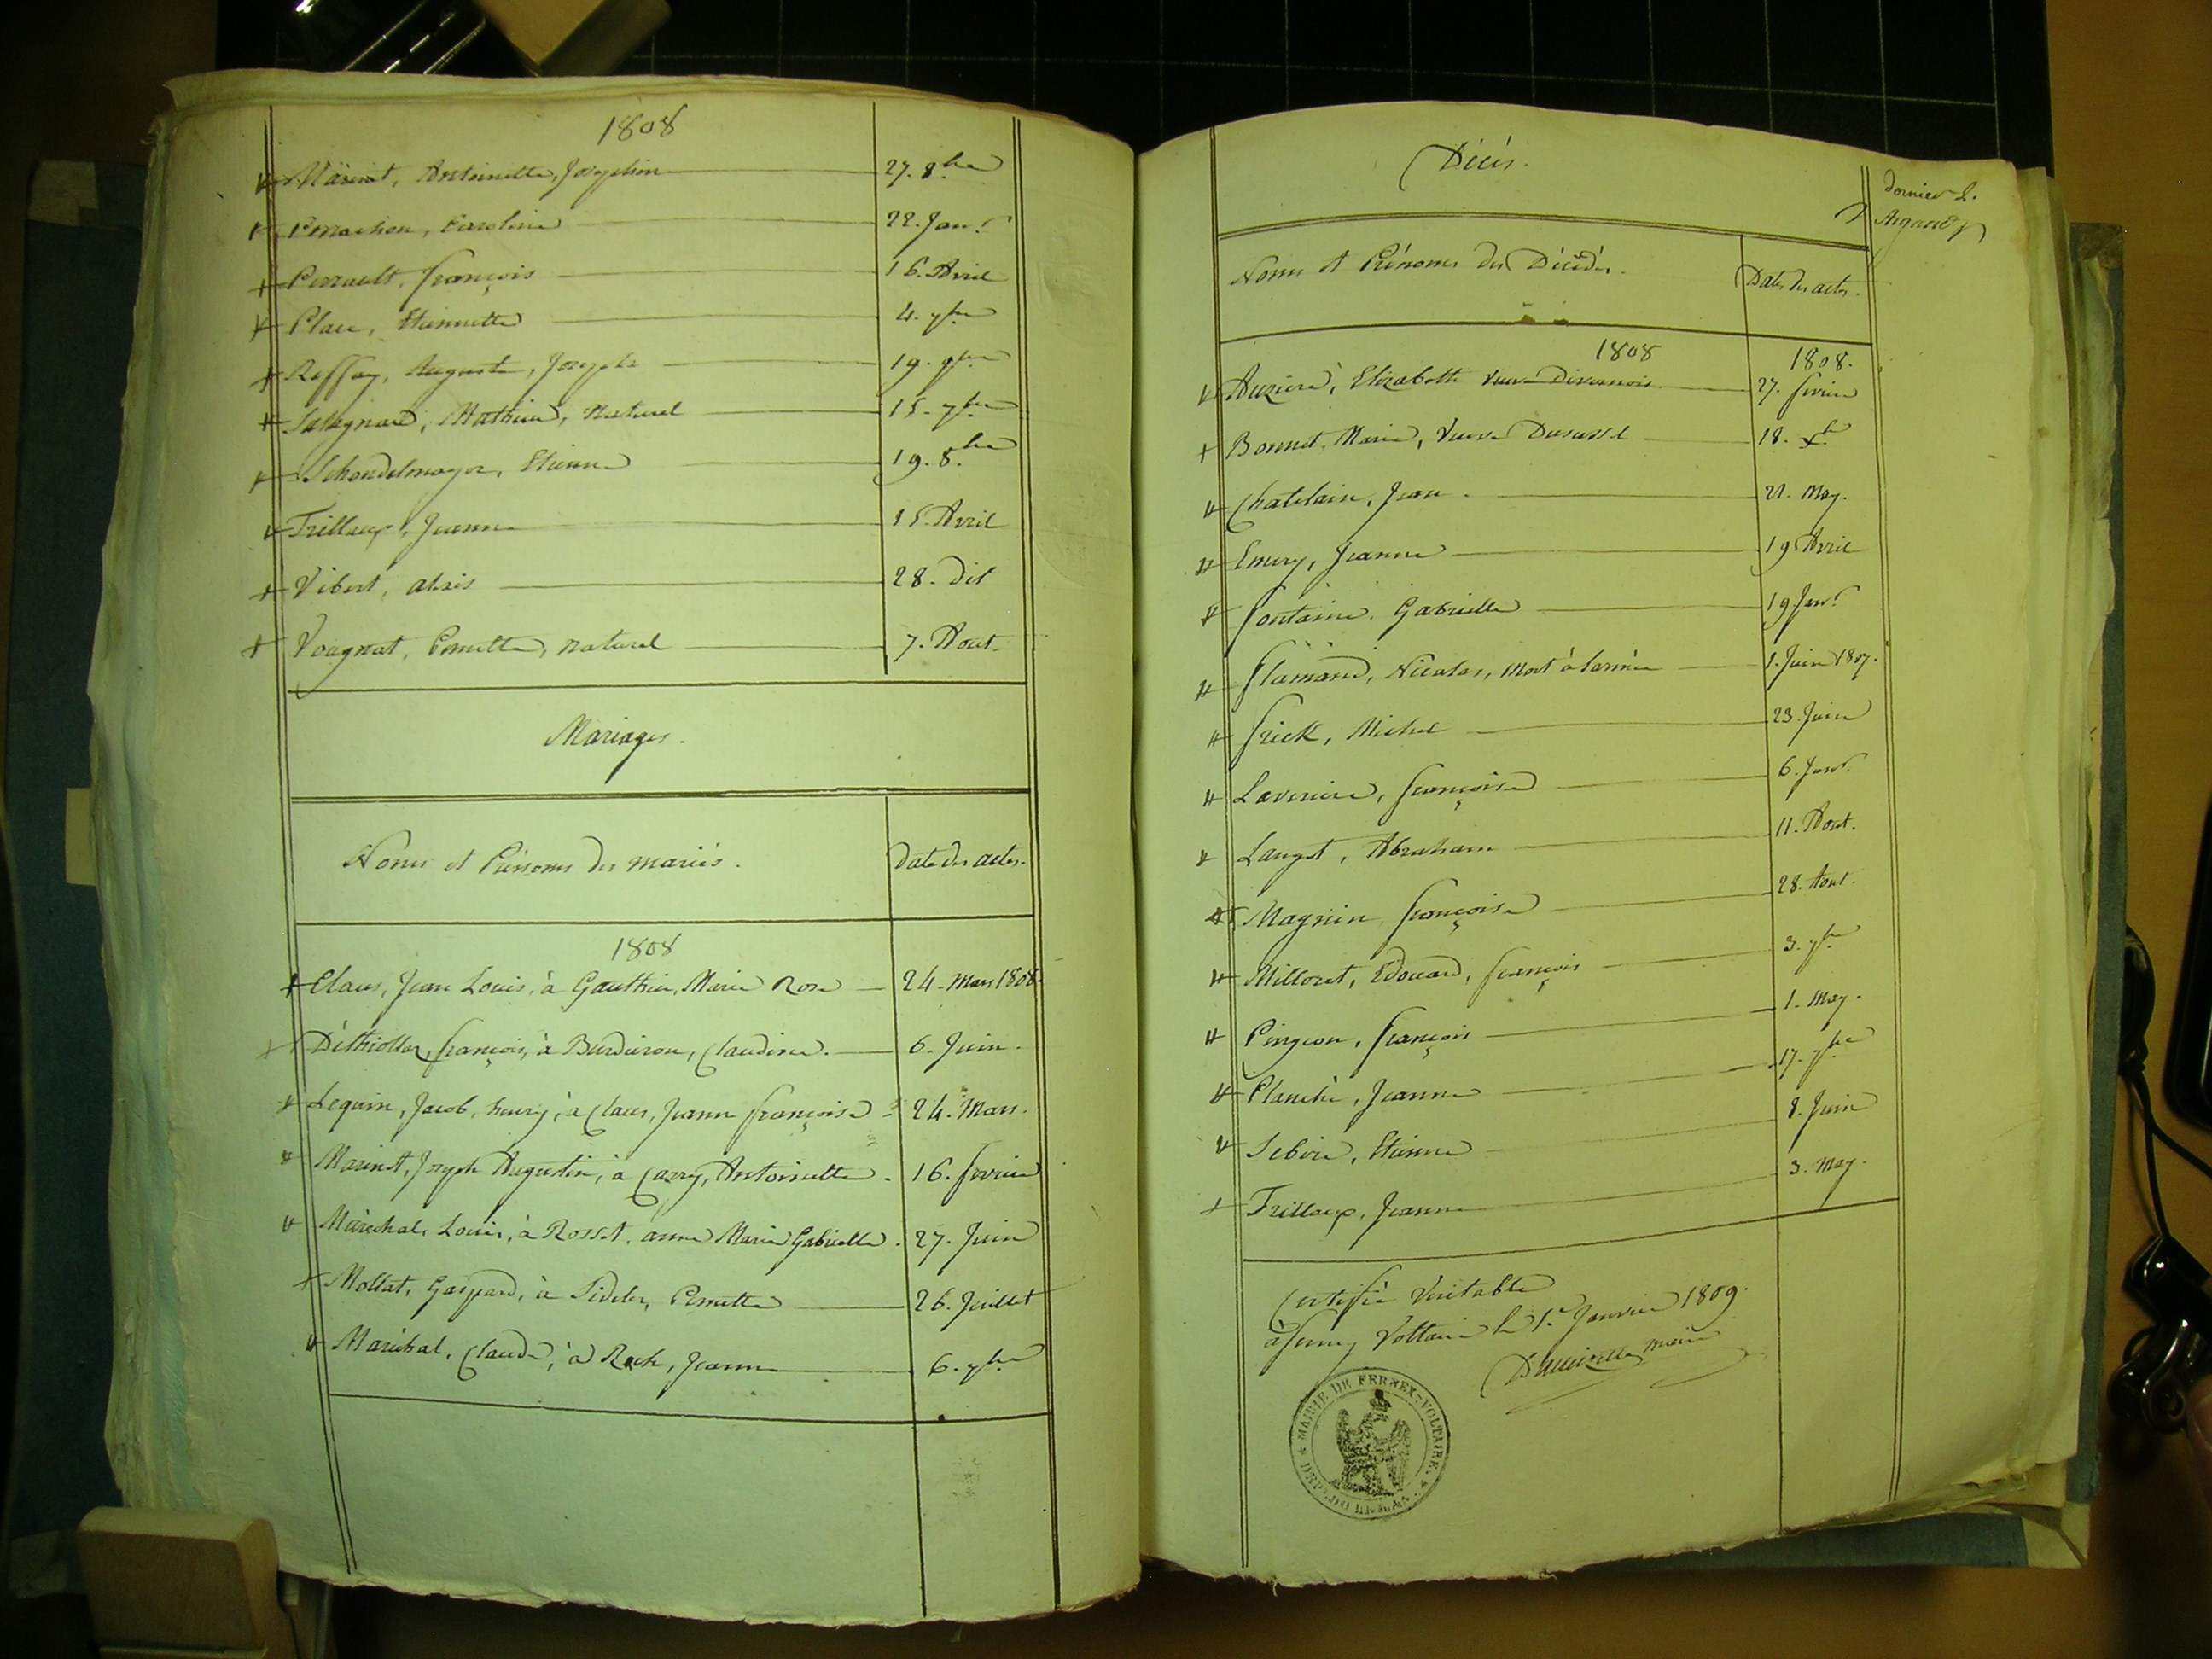 1808
Marinet, Antoinette, Josephine 27. 8bre
Pernachon, Caroline 22. Janr.
Perrault, françois 16. Avril
Place, Etiennette 4. 7bre
Reffay, Auguste, Joseph 19. 9bre
Salagnard, Mathieu, Naturel 15. 7bre
Schondelmayer, Etienne 19. 8bre
Trilloup, Jeanne 15. Avril
Vibert, alexis 28. dit
Vougnat, Pernette, naturel 7. Aout.
Mariages.
Noms et Prénoms des mariés. Date des actes.
1808
Claus, Jean Louis, à Gauthier, Marie Rose 24. Mars 1808.
Déthiollaz, françois, à Burdieron, Claudine. 6. Juin.
Lequin, Jacob, henry, à Claus, Jeanne françoise 24. Mars.
Marinet, Joseph Augustin, à Carry, Antoinette. 16. fevrier
Maréchal, Louis, à Rosset, anne Marie Gabrielle. 27. Juin
Mollat, Gaspard, à Sideler, Pernette 26. Juillet
Maréchal, Claude, à Roch, Jeanne 6. 7bre
Décès.
dernier f.
Noms et Prénoms des Décédés. Dates des actes.
1808 1808.
Auziere, Elizabeth veuve Divernois 27. fevrier
Bonnet, Marie, Veuve Dususse 18. Xbre
Chatelain, Jean 21. May.
Emery, Jeanne 19 Avril
fontaine, Gabrielle 19 Janr.
flamand, Nicolas, Mort à larmée 1. Juin 1807.
frick, Michel 23. Juin
Laveriere, françoise 6. Janr.
Lauget, Abraham 11. Aout.
Magnin, françoise 28. Aout.
Milloret, Edouard, françois 3. 9bre
Pingeon, françois 1. May.
Planche, Jeanne 17. 7bre
Sebire, Etienne 8. Juin
Trilloup, Jeanne 3. May.
Certifié Veritable
à ferney Voltaire le 1er. Janvier 1809.
maire
MAIRIE DE FERNEX-VOLTAIRE.